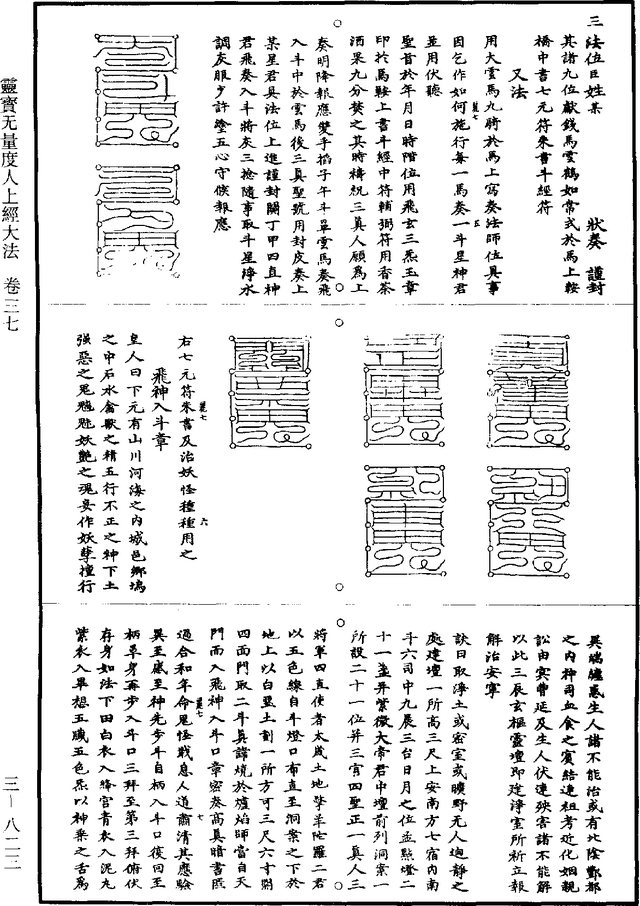 三　法位臣姓某　　　　狀奏　謹封
其諸九位獻錢馬雲鶴如常式於馬上鞍
橋中書七元符朱書斗經符
又法
用大雲馬九騎於馬上寫奏法師位具事
因乞作如何施行每一馬奏一斗星神君
並用伏聽
聖旨於年月日時階位用飛玄三炁玉章
印於馬鞍上書斗經中符輔弼符用香茶
酒果九分焚之其時禱祝三真人願為上
奏明降報應雙手搯子午斗罩雲馬奏飛
入斗中於雲馬後三真聖號用封皮奏上
某星君具法位上進謹封關丁甲四直神
君飛奏入斗將灰三捻隨事取斗星淨水
調灰服少許塗五心守候報應
右七元符朱書及治妖怪種種用之
飛神入斗章
皇人曰下元有山川河海之內城邑鄉塢
之中石水禽獸之精五行不正之神下土
強惡之鬼魑魅妖艷之魂妄作妖孽擅行
異端繼惑生人諸不能治或有北陰酆都
之內神司血食之賓結連祖考近化姻親
訟由冥曹延及生人伏連殃害諸不能解
以此三辰玄樞靈壇即建淨室所祈立報
解治安寧
訣曰取淨土或密室或曠野无人迴靜之
處建壇一所高三尺上安南方七宿內南
斗六司中九晨三台日月之位盃點燈二
十一盞并紫微大帝君中壇前列洞案一
所設二十一位并三官四聖正一真人三
將軍四直使者太歲土地孛羊陀羅二君
以五色線自斗燈口布直至洞案之下於
地上以白堊土劃一所方可三尺六寸開
四面門取二斗真諱燒於爐焰師當自天
門而入飛神入斗口章密奏高真暗書匹
適合和年命鬼怪戢息人道肅清其應驗
異至感至神先步斗自柄入斗口復回至
柄罩身再步入斗口三拜至第三拜俯伏
存身如法下田白衣入絳宮青衣入泥丸
紫衣入畢想五臟五色炁以神乘之舌為
靈寶无量度人上經大法　卷三七
三—八二三